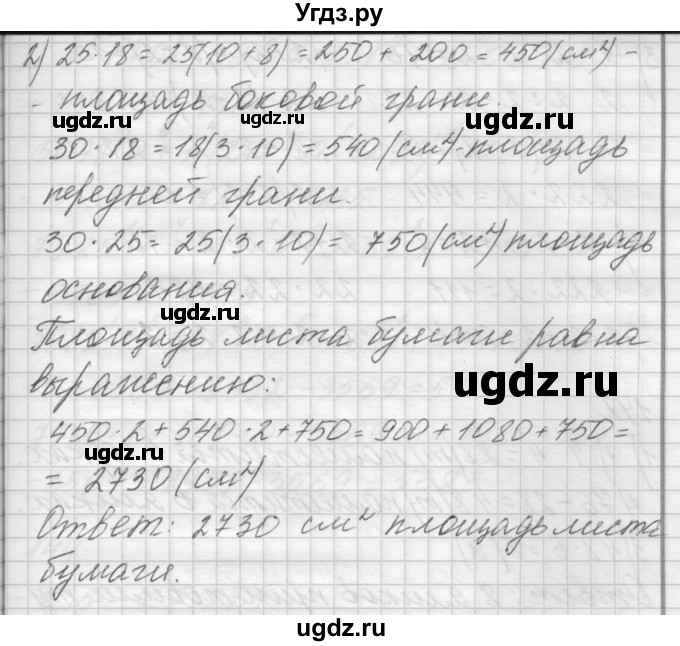 Угдз.ру
2) 25·18 = 25(10+8) = 250 + 200 = 450 (см²) -
- площадь боковой грани.
ugdz.ru ugdz.ru ugdz.ru
30·18 = 18(3·10) = 540 (см²)-площадь
передней грани.
30·25 = 25(3·10) = 750 (см²) площадь
основания.
ugdz.ru
Площадь листа бумаги равна
выражению:
ugdz.ru
450·2 + 540·2 + 750 = 900 + 1080 + 750 =
ugdz.ru
= 2730 (см²)
Ответ: 2730 см² площадь листа
бумаги.
ugdz.ru
ugdz.ru